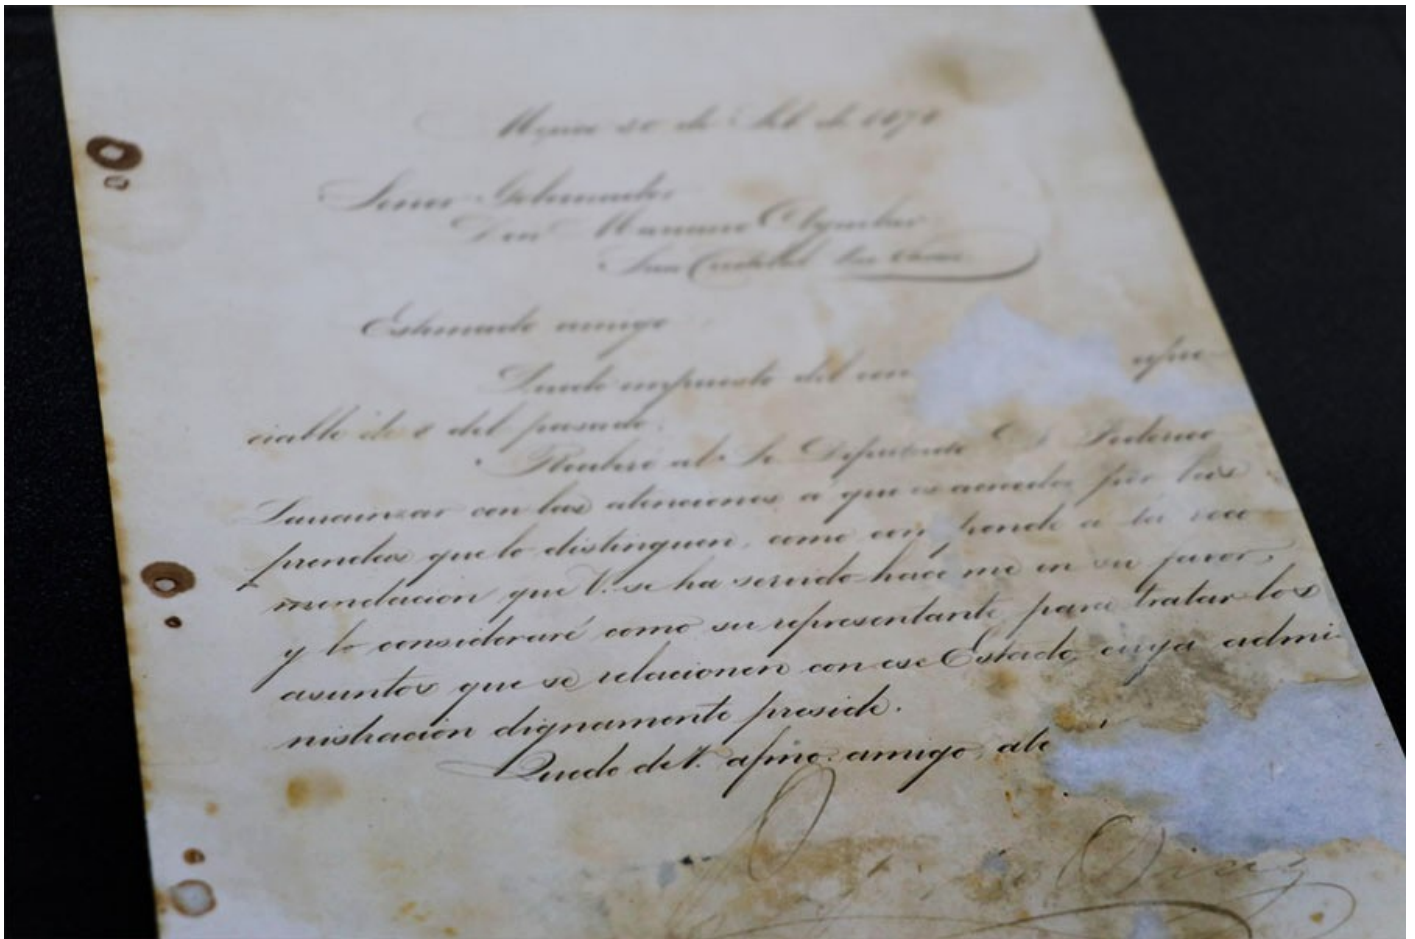 de
Señor Gobernador
Don Mariano
San Cristobal Las Casas
Estimado amigo
Quedo impuesto del apre-
ciable de del pasado.
Recibiré al Sr. Diputado D. Federico
con las atenciones a que es acreedor por las
prendas que lo distinguen, como a la reco
mendacion que V. se ha servido hacerme en su favor,
y lo consideraré como su representante para tratar los
asuntos que se relacionen con ese Estado, cuya admi-
nistracion dignamente preside.
Quedo de V. afmo. amigo,
Diaz